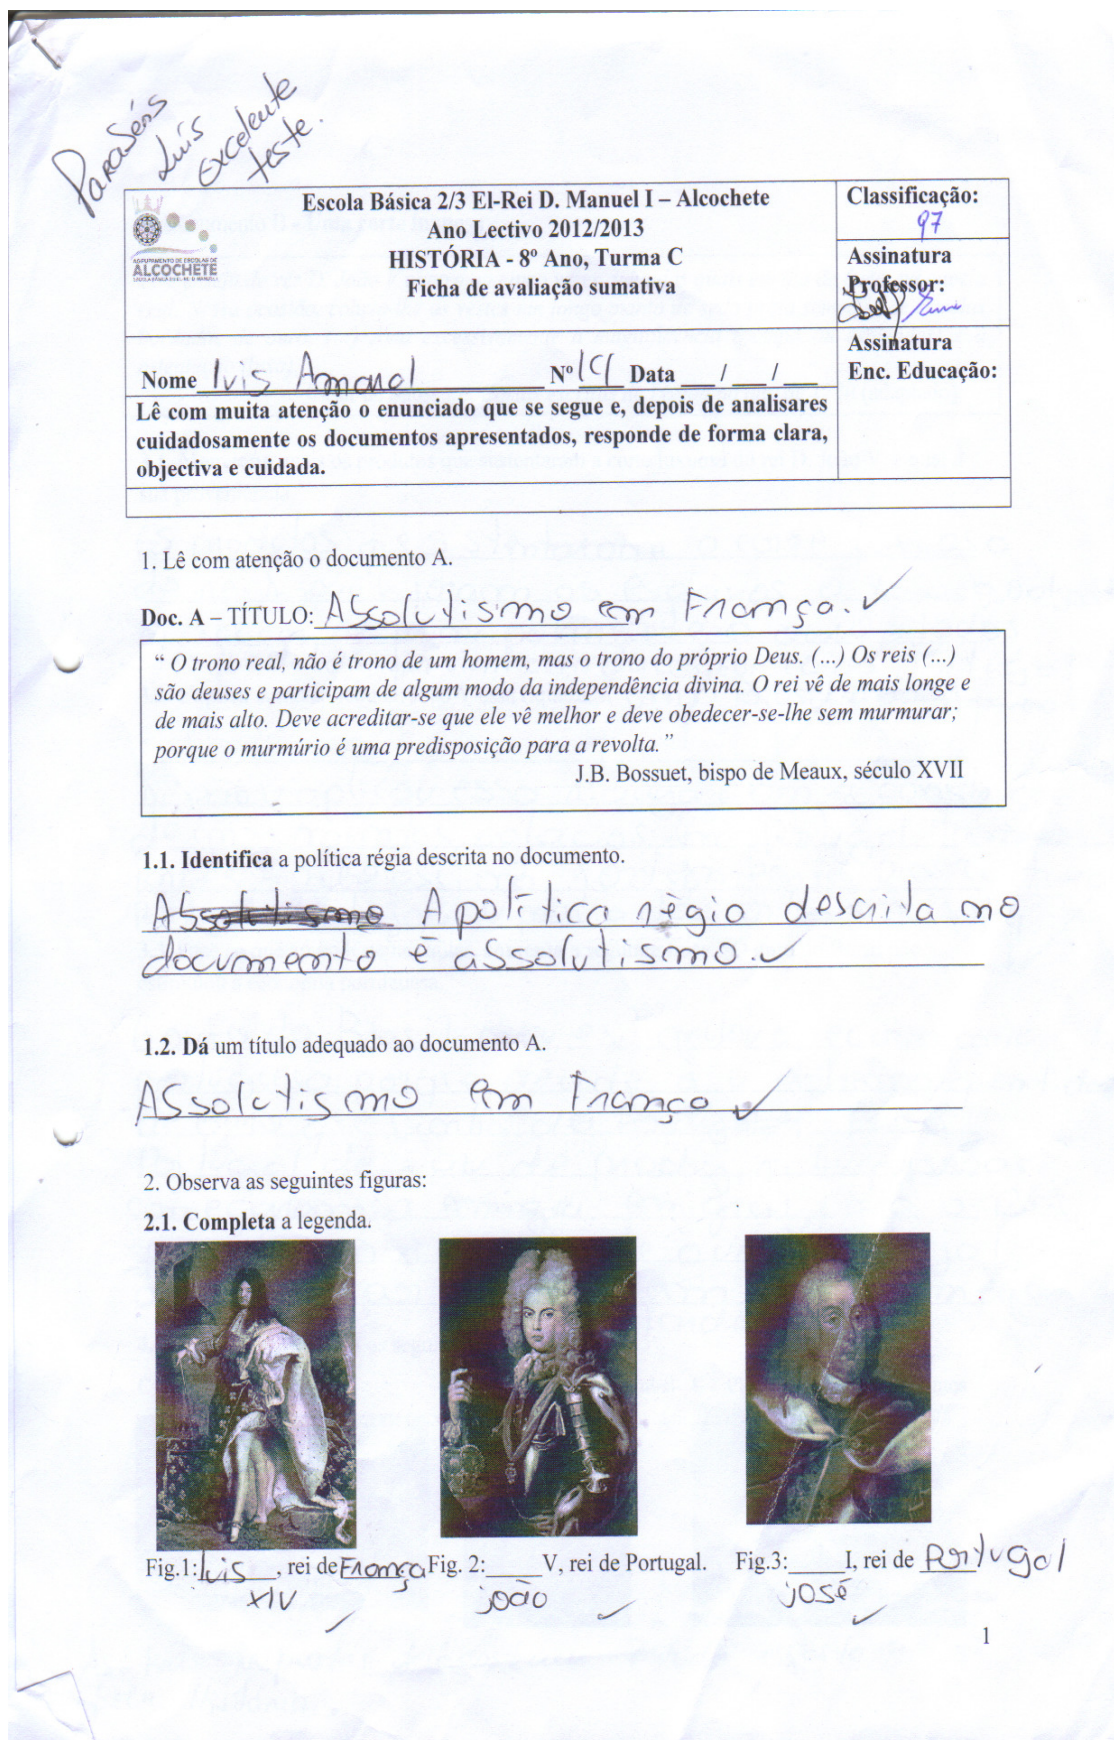 Parabéns
Luís
excelente
teste.
AGRUPAMENTO DE ESCOLAS DE
ALCOCHETE
Escola Básica 2/3 El-Rei D. Manuel I – Alcochete
Ano Lectivo 2012/2013
HISTÓRIA - 8º Ano, Turma C
Ficha de avaliação sumativa
Classificação:
97
Assinatura
Professor:
Assinatura
Enc. Educação:
Nome Luis Amaral Nº 19 Data ___ / ___ / ___
Lê com muita atenção o enunciado que se segue e, depois de analisares
cuidadosamente os documentos apresentados, responde de forma clara,
objectiva e cuidada.
1. Lê com atenção o documento A.
Doc. A – TÍTULO: Assolutismo em França.
“ O trono real, não é trono de um homem, mas o trono do próprio Deus. (...) Os reis (...)
são deuses e participam de algum modo da independência divina. O rei vê de mais longe e
de mais alto. Deve acreditar-se que ele vê melhor e deve obedecer-se-lhe sem murmurar;
porque o murmúrio é uma predisposição para a revolta. ”
J.B. Bossuet, bispo de Meaux, século XVII
1.1. Identifica a política régia descrita no documento.
Absolutismo A política régia descrita no
documento é assolutismo.
1.2. Dá um título adequado ao documento A.
Assolutismo em França
2. Observa as seguintes figuras:
2.1. Completa a legenda.
Fig.1: Luis XIV, rei de França
Fig. 2: João V, rei de Portugal.
Fig.3: José I, rei de Portugal
1